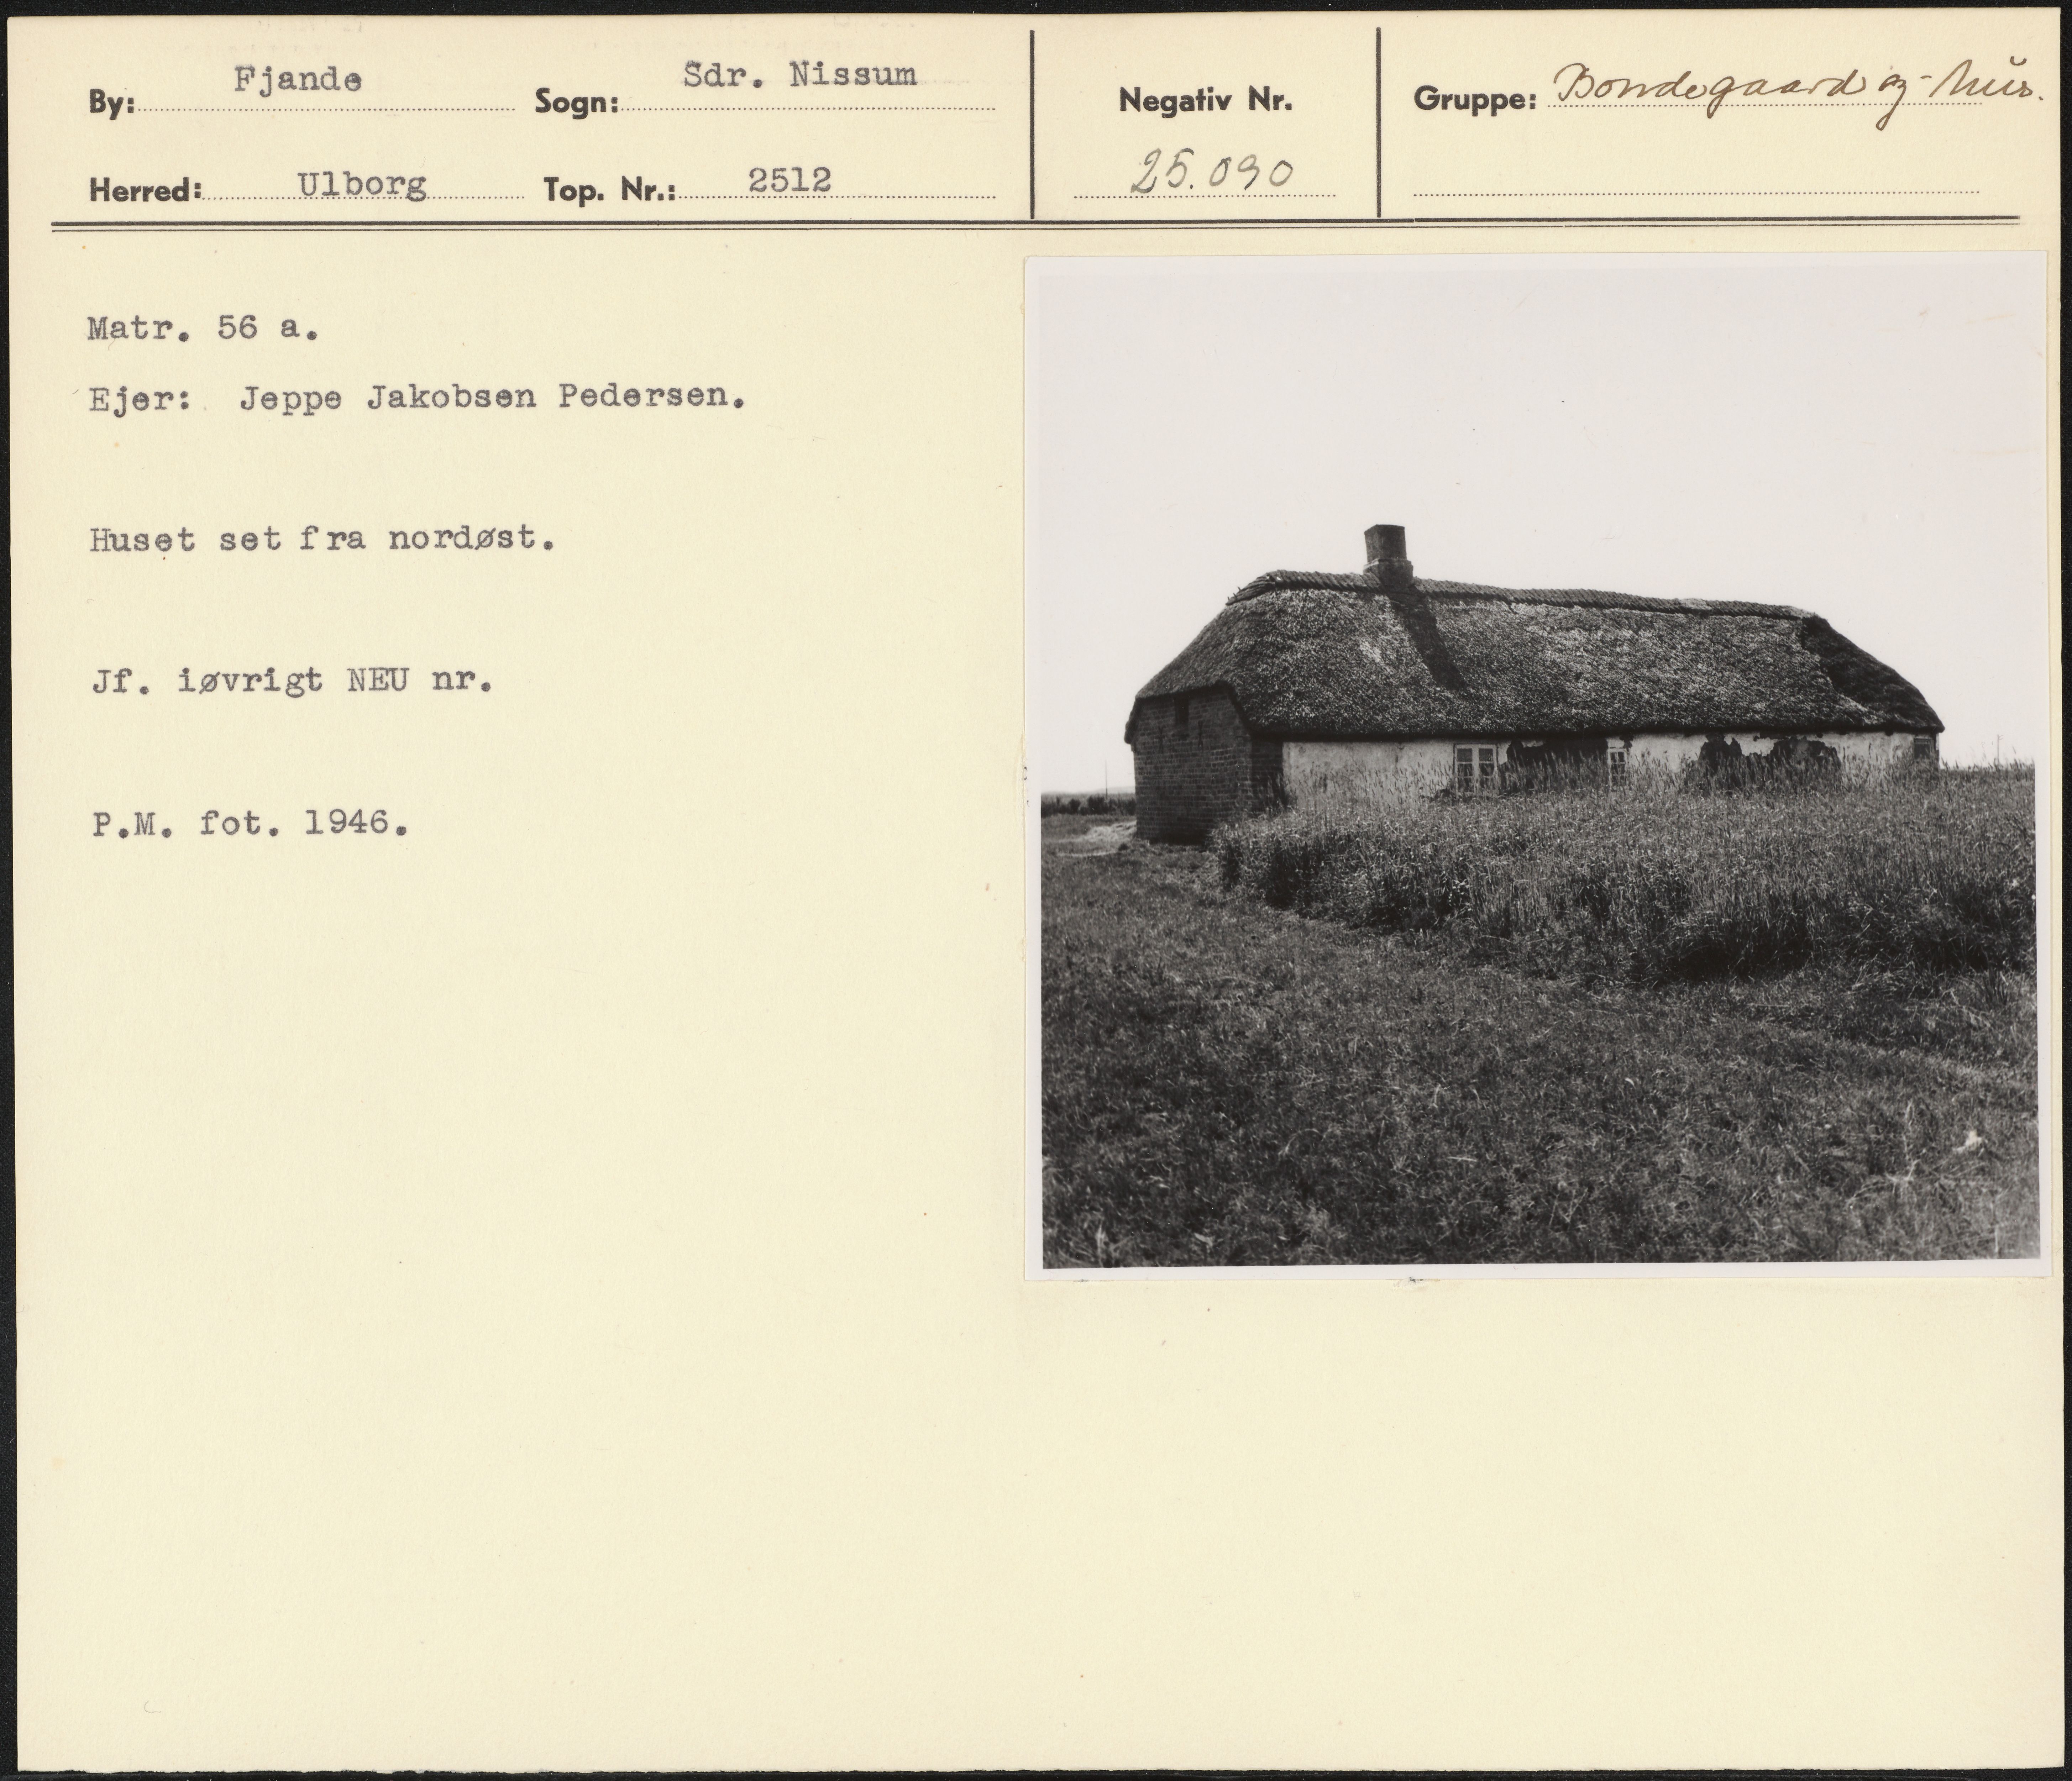 By: Fjande Sogn: Sdr. Nissum
Herred: Ulborg Top. Nr.: 2512
Negativ Nr.
25.090
Gruppe: Bondegaard og - hus.
Matr. 56 a.
Ejer: Jeppe Jakobsen Pedersen.
Huset set fra nordøst.
Jf. iøvrigt NEU nr.
P.M. fot. 1946.